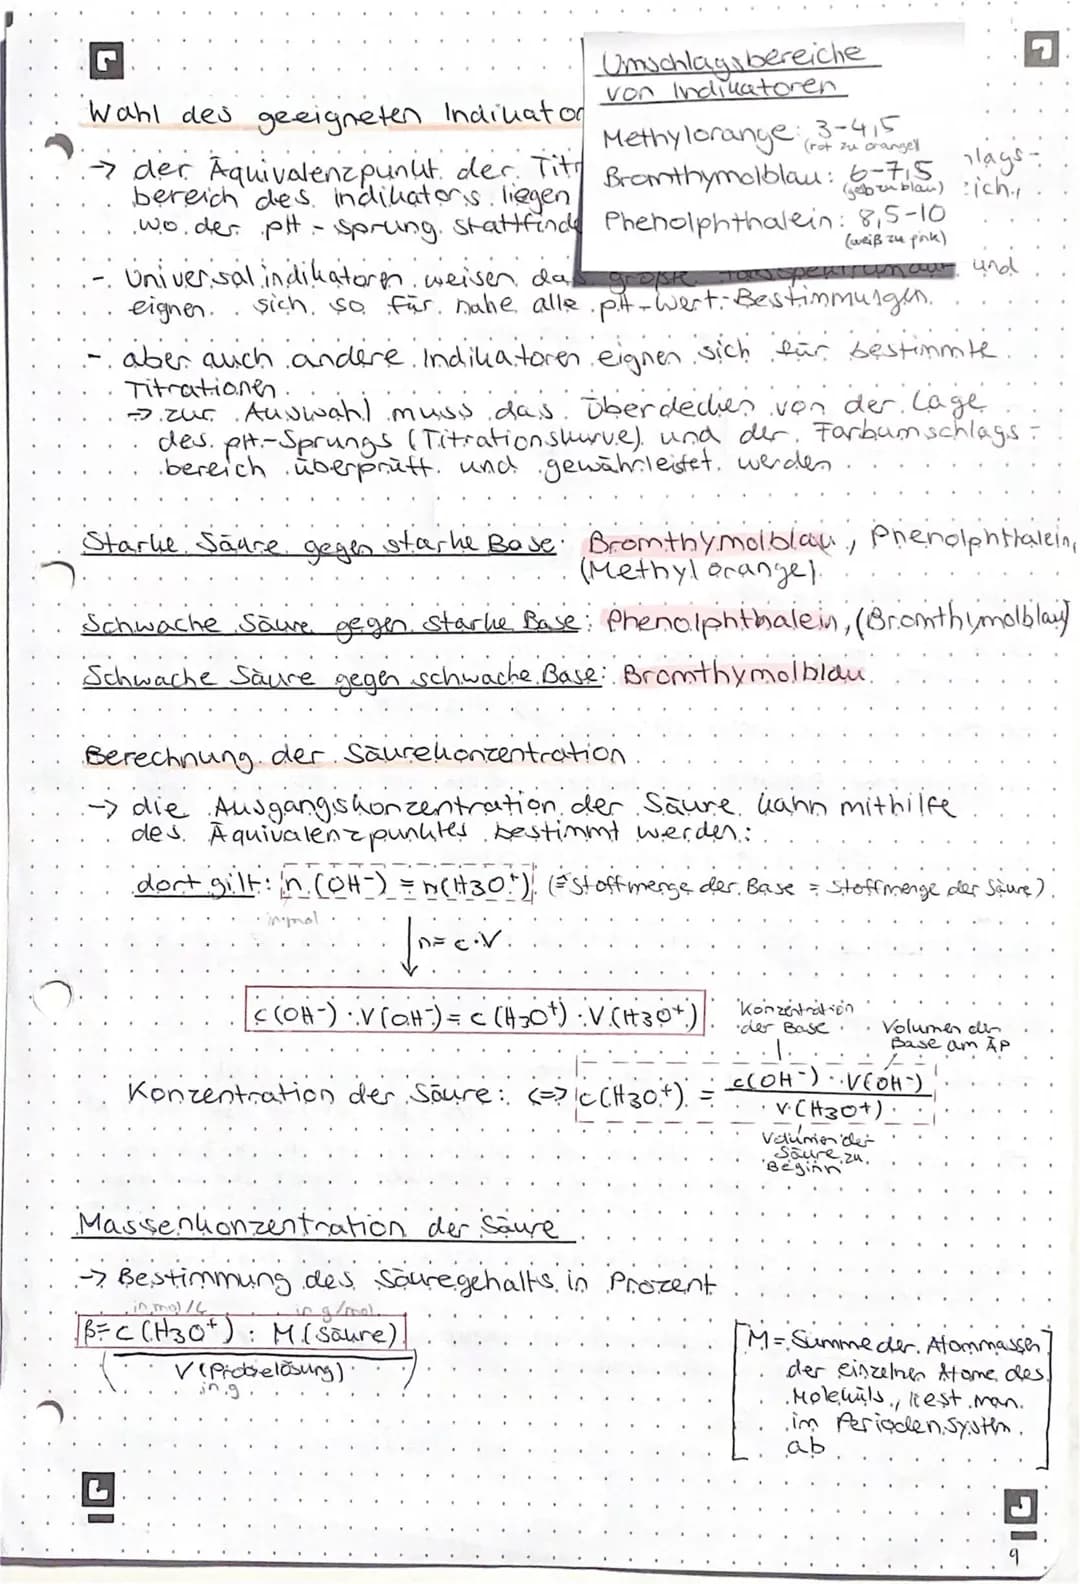 Umschlagsbereiche
von Indikatoren
Methylorange: 3-4,5
(rot zu orangel
Bromthymolblau: 6-7,5
(gelb zu blau)
Phenolphthalein: 8,5-10
(weiß zu pink)
Wahl des geeigneten Indikator
→ der Äquivalenzpunkt der Titr
lags-
bereich des indikators liegen
ich,
wo der pH-sprung stattfinde
- Universalindikatoren weisen das größte und
eignen sich so für nahe alle pH-Wert-Bestimmungen.
- aber auch andere Indikatoren eignen sich für bestimmte
Titrationen
→ zur Auswahl muss das Überdecken von der Lage
des pH-Sprungs (Titrationskurve) und der Farbumschlags-
bereich überprüft und gewährleistet werden
Starke Säure gegen starke Base: Bromthymolblau, Phenolphthalein,
(Methylorange)
Schwache Säure gegen starke Base: Phenolphthalein, (Bromthymolblau)
Schwache Säure gegen schwache Base: Bromthymolblau
Berechnung der Säurekonzentration
→ die Ausgangskonzentration der Säure kann mithilfe
des Äquivalenzpunktes bestimmt werden:
dort gilt: n(OH-) = n(H3O+) (≙ Stoffmenge der Base = Stoffmenge der Säure)
in mol
↓ n= c·V
c(OH-)·V(OH-) = c(H3O+)·V(H3O+)
Konzentration
der Base
Volumen der
Base am ÄP
Konzentration der Säure: <=> c(H3O+) = c(OH-)·V(OH-)
V(H3O+)
Volumen der
Säure zu
Beginn
Massenkonzentration der Säure
→ Bestimmung des Säuregehalts in Prozent
in mol/L in g/mol
β= c(H3O+) · M(Säure)
(V(Probelösung))
in g
M = Summe der Atommassen
der einzelnen Atome des
Moleküls, liest man
im Periodensystem
ab
9